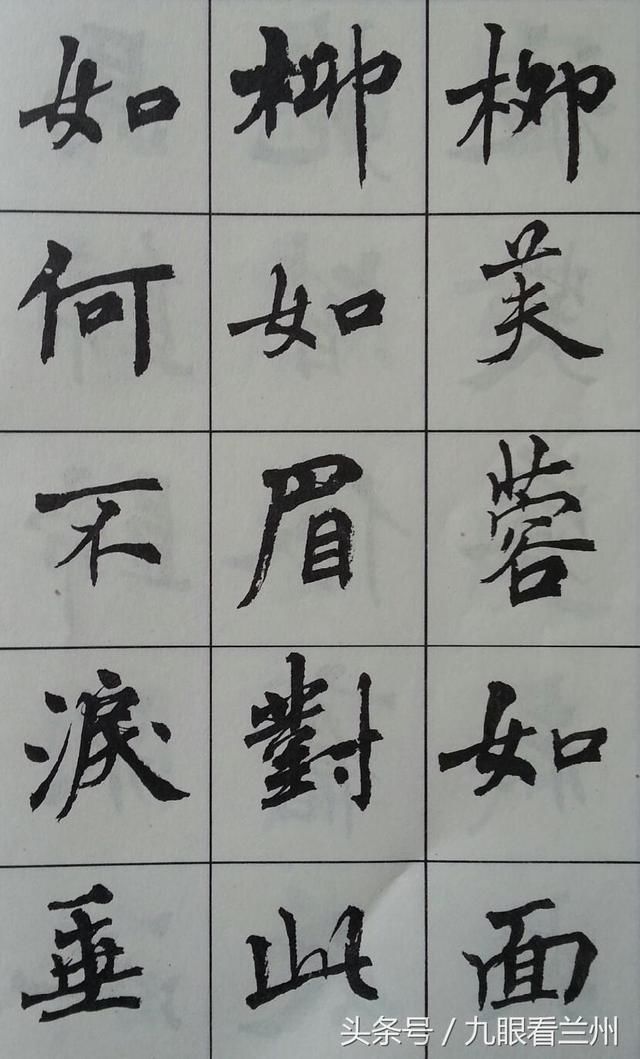 柳芙蓉如面
柳如眉對此
如何不淚垂
头条号 / 九眼看兰州